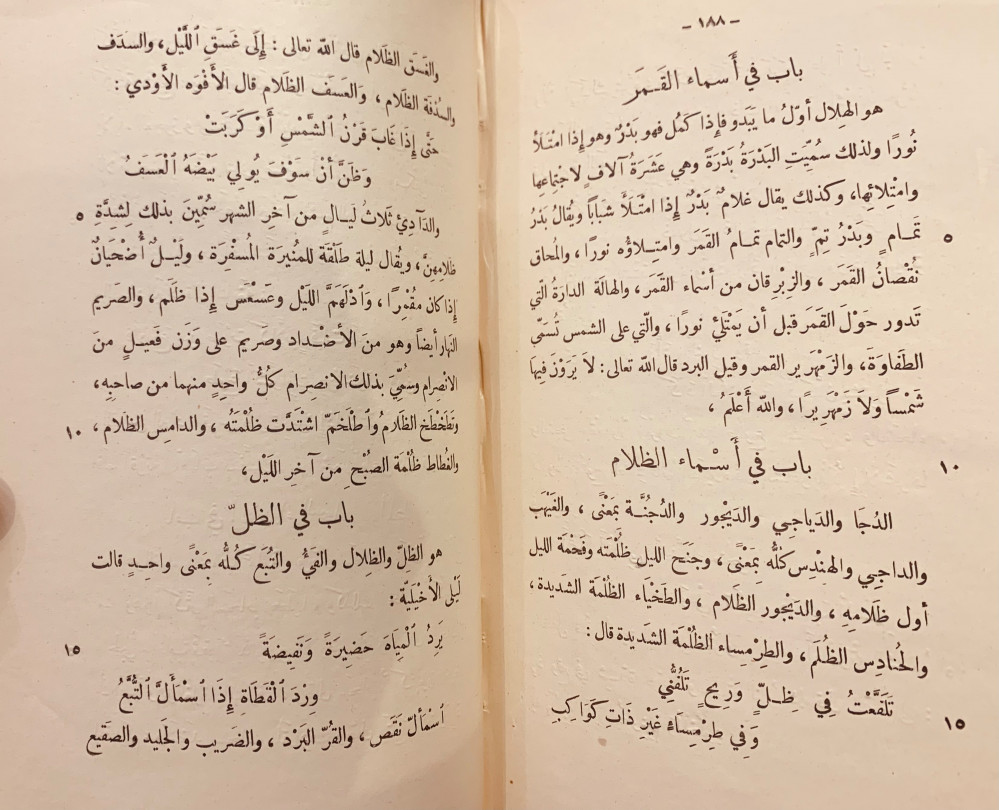 - ١٨٨ -
باب في أَسماء القَـمَر
هو الهِلال أوّلُ ما يَبَدو فإذا كَمُل فهو بَدْرٌ وهو إذا امْتَـلَأَ
نُورًا ولذلك سُمّيتِ البَدْرَةُ بَدْرَةً وهي عَشَرَةُ آلافٍ لاجْتِماعِها
وامْتِلائِها، وكذلك يقال غلامٌ بَدْرٌ إذا امْتَـلَأَ شَبَابًا ويُقالُ بَدْرُ
تَمَـامٍ وبَدْرُ تِمٍّ والتمام تمـامُ القَمَر وامتِـلاؤُه نورًا، والمُحاق ٥
نُقْصَانُ القَمَر ، والزِبْرِقان من أَسْماء القَمَر، والهالَة الدارَةُ الّتي
تَدور حَوْلَ القَمَر قبل أن يَمْتَلِئَ نورًا ، والّتي على الشمس تُسَمَّى
الطَفَاوَةَ، والزَمْهَرِير القمر وقيل البرد قال الله تعالى: لَا يَرَوْنَ فِيهَا
شَمْساً وَلَا زَمْهَرِيرًا ، والله أَعْلَمُ ،
باب في أَسْـماء الظلام ١٠
الدُجَا والدَياجِي والدَيْجور والدُجُنَّـة بِمَعْنًى ، والغَيْهَب
والداجِـي والهِنْدِس كُلُّه بِمَعْنًى، وجِنَح الليل ظُلْمَته وفَحْمَة الليل
أول ظَلامِهِ ، والدَيْجور الظَلام ، والطَخْيَاء الظُلْمَة الشديدة ،
والحُنادِس الظُلَم ، والطِرْمِساء الظُلْمَة الشديدة قال :
تَلَفَّعْتُ فِي ظِـلٍّ وَرِيحٍ تَلُفُّنِي
وَفِي طِرْمِسَاءٍ غَيْرِ ذَاتِ كَوَاكِبِ ١٥
والغَسَق الظَلام قال الله تعالى : إِلَى غَسَقِ ٱللَّيْلِ، والسدَف
والسُدْفَة الظَلام ، والعَسَف الظَلام قال الأَفْوَه الأَوْدي :
حَتَّى إِذَا غَابَ قَرْنُ ٱلشَّمْسِ أَوْ كَرَبَتْ
وَظَنَّ أَنْ سَوْفَ يُولِي بَيْضَهُ ٱلْعَسَفُ
والدَآدِئ ثَلاثُ لَيـالٍ من آخرِ الشهر سُمِّينَ بذلك لِشِدَّةِ ٥
ظلامِهِنَّ، ويُقال ليلة طَلْقَة للمُنيرَة المُسفْرِة ، ولَيْـلٌ أُضْحِيَانٌ
إذا كان مُقْمِرًا ، وَٱدْلَهَمَّ اللَيل وعَسْعَس إذا ظَلَم، والصَريم
النهار أيضاً وهو من الأَضْـداد وصَريم على وَزَن فَعيـلٍ من
الانصِرام وسُمِّيَ بذلك الانصِرام كلُّ واحِدٍ منهما من صاحِبِهِ،
وتَخَطْخَطَ الظَلامُ وٱطْلَخَمَّ اشتَدَّت ظُلْمَتُه ، والدامِس الظَلام ، ١٠
والغُطاط ظُلْمَة الصُبْحِ من آخرِ اللَيْلِ،
باب في الظلّ
هو الظلّ والظِلال والفَيْءُ والتُبَّع كُـلُّه بِمَعْنًى واحِـدٍ قالت
لَيْلَى الأَخْيَلِيَّة :
يَرِدُ ٱلْمِيَاهَ حَضِيرَةً وَنَفِيضَةً ١٥
وِرْدَ ٱلْقَطَاةِ إِذَا ٱسْمَأَلَّ ٱلتُّبَّعُ
اسْمَألّ نَقَصَ ، والقُرّ البَرْد ، والضَريب والجَليد والصَقيع